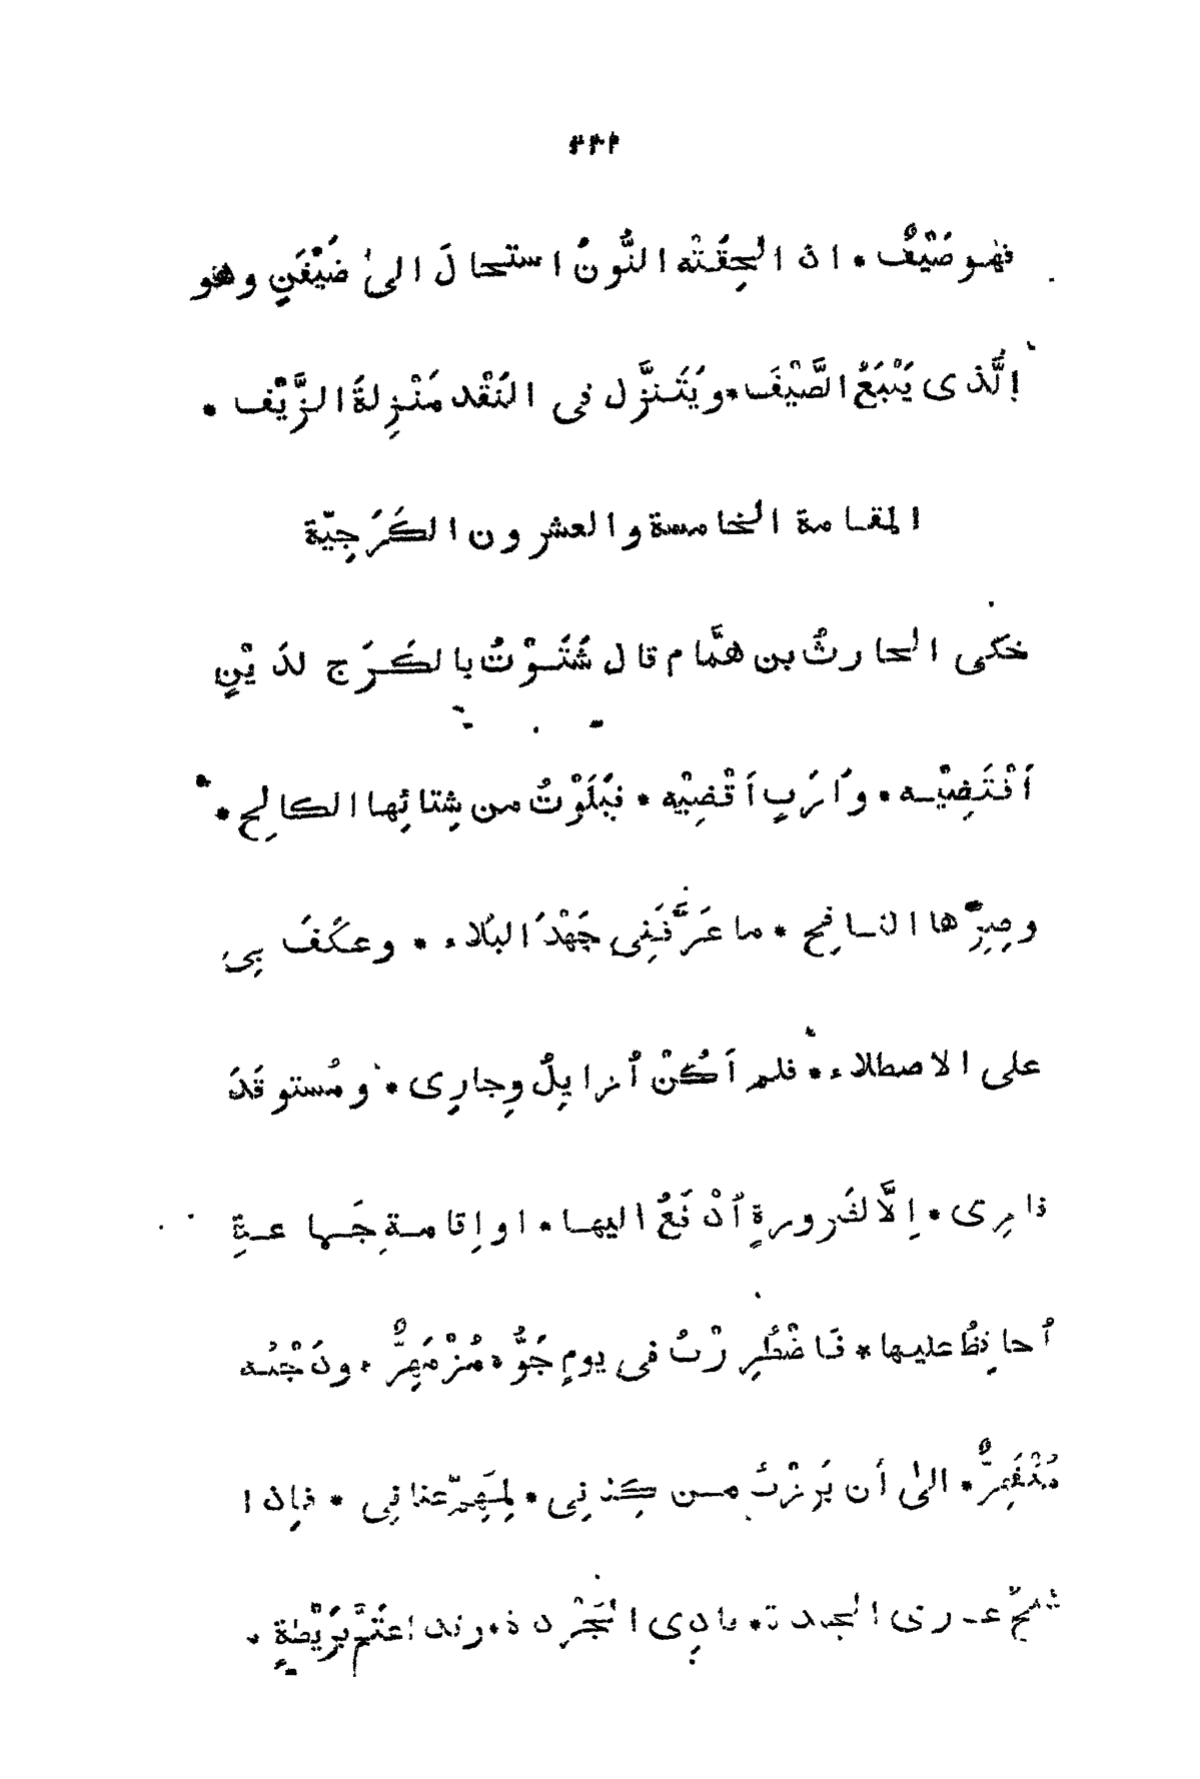 فهو ضَيْفٌ * اذ الْحِقَتْه النُّونُ استحالَ الىٰ ضَيْفَنٍ وهُو
الَّذى يَتْبَعُ الضَّيْفَ * ويَتَنزَّل فى النَقْد مَنْزِلةَ الزَّيْف *
المقامة الخامسة والعشرون الكَرَجِيّة
حَكى الحارثُ بن همَّام قال شَتَوْتُ بالكَرَج لدَيْنٍ
اَقْتَضِيْه * وَاَرَبٍ اَقْضِيْه * فبَلَوْتُ من شِتائِها الكالِح *
وصِرِّها النافِح * ما عَرَّفَنِى جَهْدَ البَلاء * وعكَفَ بِى
على الاصطلاء * فلم اَكُنْ اُزايِلُ وِجارِى * ومُستوقَدَ
نارِى * اِلَّا لضَرورةٍ اُدْفَعُ اليها * او اِقامةِ جَماعةٍ
اُحافِظُ عليها * فَاضْطُرِرْتُ فى يومٍ جَوُّه مُزْمَهِرٌّ * ودَجْنُه
مُغْفَهِرٌّ * الىٰ أن بَرزْتُ من كِنّنِى * لِمَهِمّ عَنانِى * فاِذا
شيخٌ عارى الجِلدة * بادِى الجُرْدة * وقد اعتَمَّ بِرَيْطةٍ *